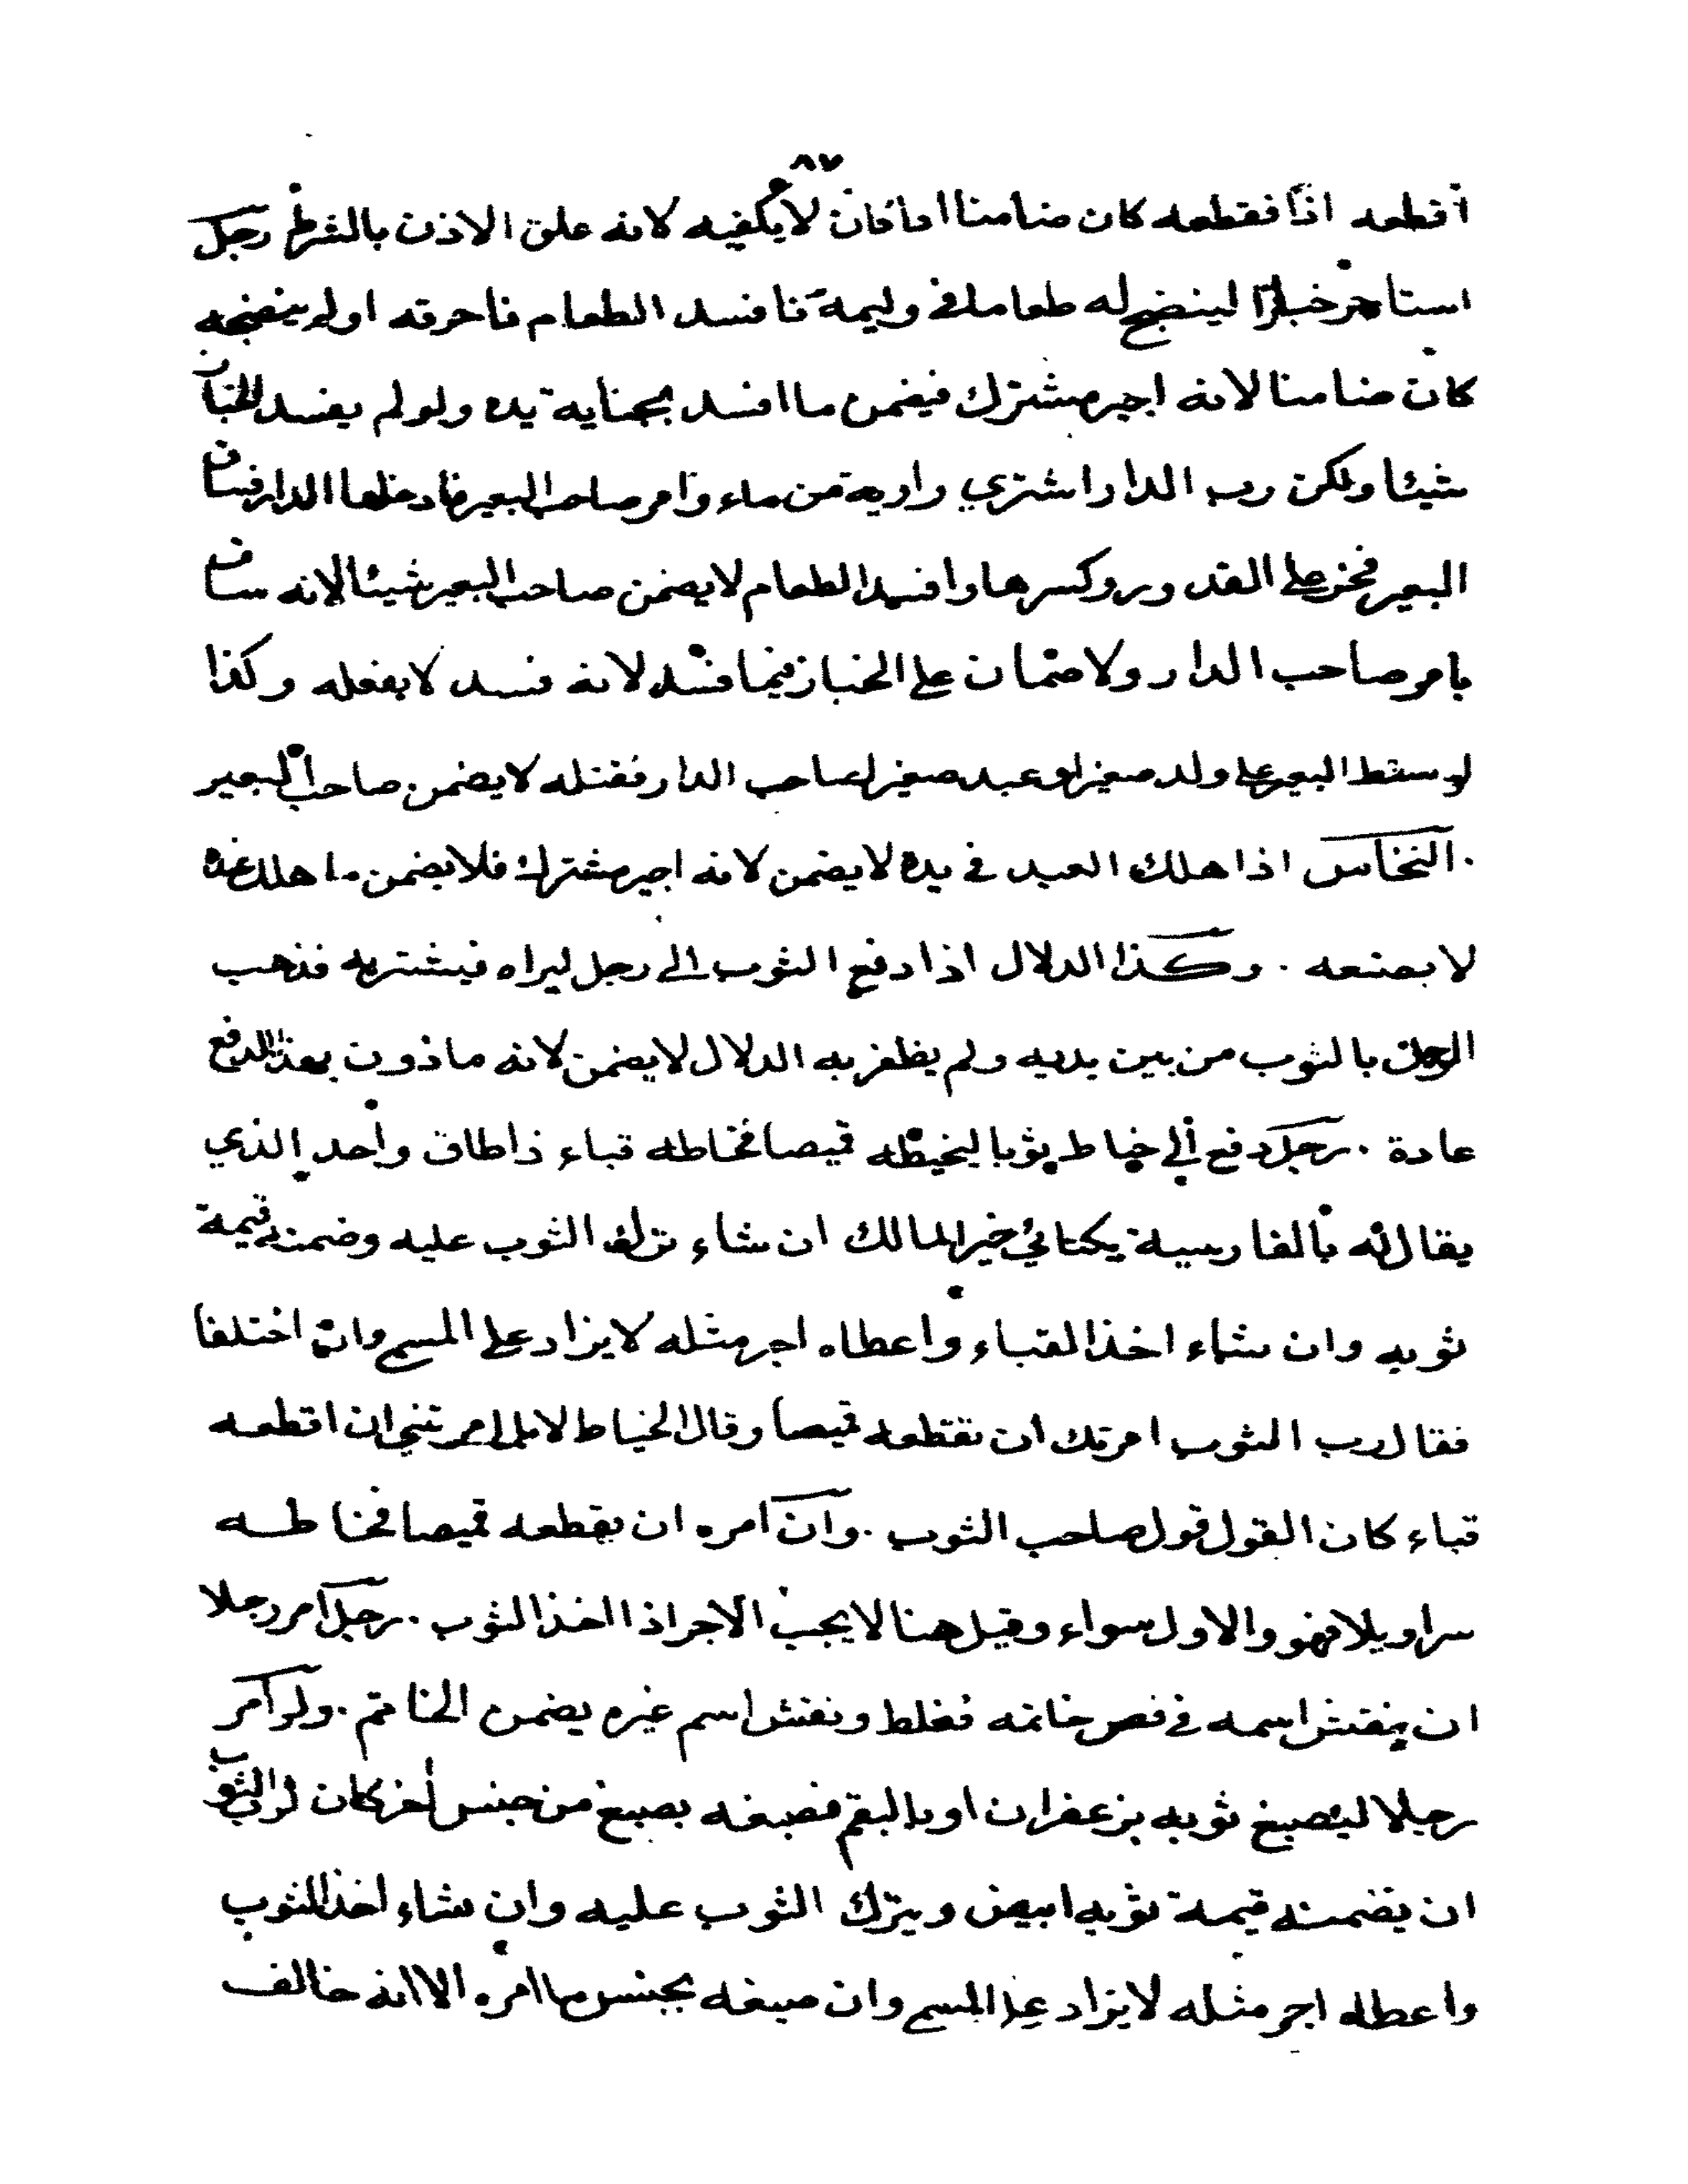 ٨٧
اقطعه اذا فقطعه كان ضامنا اذا كان لا يكفيه لانه علق الاذن بالشرط رجل
استاجر خبازا لينضج له طعاما في وليمة فافسد الطعام فاحرقه او لم ينضجه
كان ضامنا لانه اجير مشترك فيضمن ما افسد بجناية يده ولو لم يفسد الخباز
شيئا ولكن رب الدار اشتري راوية من ماء وامر صاحب البعير فادخلها الدار فساق
البعير فخر على القدور وكسرها وافسد الطعام لا يضمن صاحب البعير شيئا لانه ساق
بامر صاحب الدار ولا ضمان على الخباز فيما فسد لانه فسد لا بفعله وكذا
لو سقط البعير على ولد صغير او عبد صغير لصاحب الدار فقتله لا يضمن صاحب البعير
. النخاس اذا هلك العبد في يده لا يضمن لانه اجير مشترك فلا يضمن ما هلك عنده
لا بصنعه . وكذا الدلال اذا دفع الثوب الى رجل ليراه فيشتريه فذهب
الرجل بالثوب من بين يديه ولم يظفر به الدلال لا يضمن لانه ماذون بهذا الدفع
عادة . رجل دفع الى خياط ثوبا ليخيطه قميصا فخاطه قباء ذا طاق واحد الذي
يقال له بالفارسية يكتائي خير المالك ان شاء ترك الثوب عليه وضمنه قيمة
ثوبه وان شاء اخذ القباء واعطاه اجر مثله لا يزاد على المسمى وان اختلفا
فقال رب الثوب امرتك ان تقطعه قميصا وقال الخياط لا بل امرتني ان اقطعه
قباء كان القول قول صاحب الثوب . وان امره ان يقطعه قميصا فخاطه
سراويلا فهو والاول سواء وقيل هنا لا يجب الاجر اذا اخذ الثوب . رجل امر رجلا
ان ينقش اسمه في فص خاتمه فغلط ونقش اسم غيره يضمن الخاتم . ولو امر
رجلا ليصبغ ثوبه بزعفران او بالبقم فصبغه بصبغ من جنس اخر كان لرب الثوب
ان يضمنه قيمة ثوبه ابيض ويترك الثوب عليه وان شاء اخذ الثوب
واعطاه اجر مثله لا يزاد على المسمى وان صبغه بجنس ما امره الا انه خالف